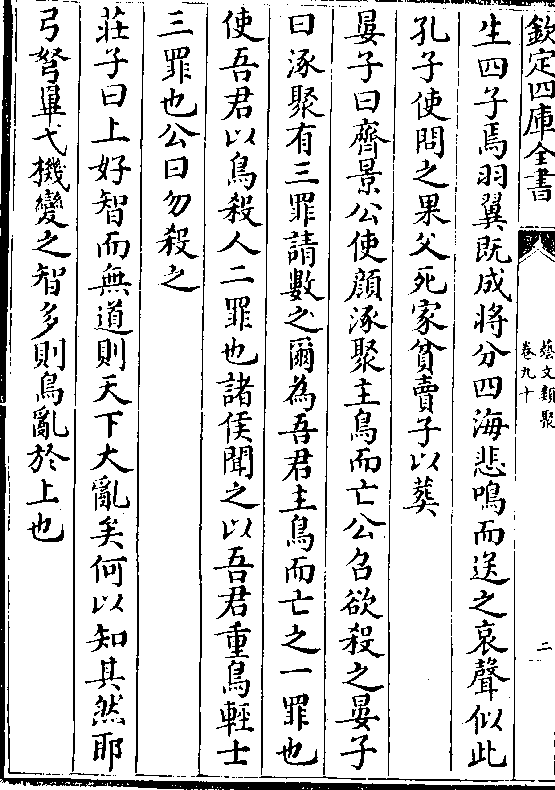 欽定四庫全書
藝文類聚
卷九十
二
生四子焉羽翼既成將分四海悲鳴而送之哀聲似此
孔子使問之果父死家貧賣子以葬
晏子曰齊景公使顔涿聚主鳥而亡公召欲殺之晏子
曰涿聚有三罪請數之爾為吾君主鳥而亡之一罪也
使吾君以鳥殺人二罪也諸侯聞之以吾君重鳥輕士
三罪也公曰勿殺之
莊子曰上好智而無道則天下大亂矣何以知其然耶
弓弩畢弋機變之智多則鳥亂於上也